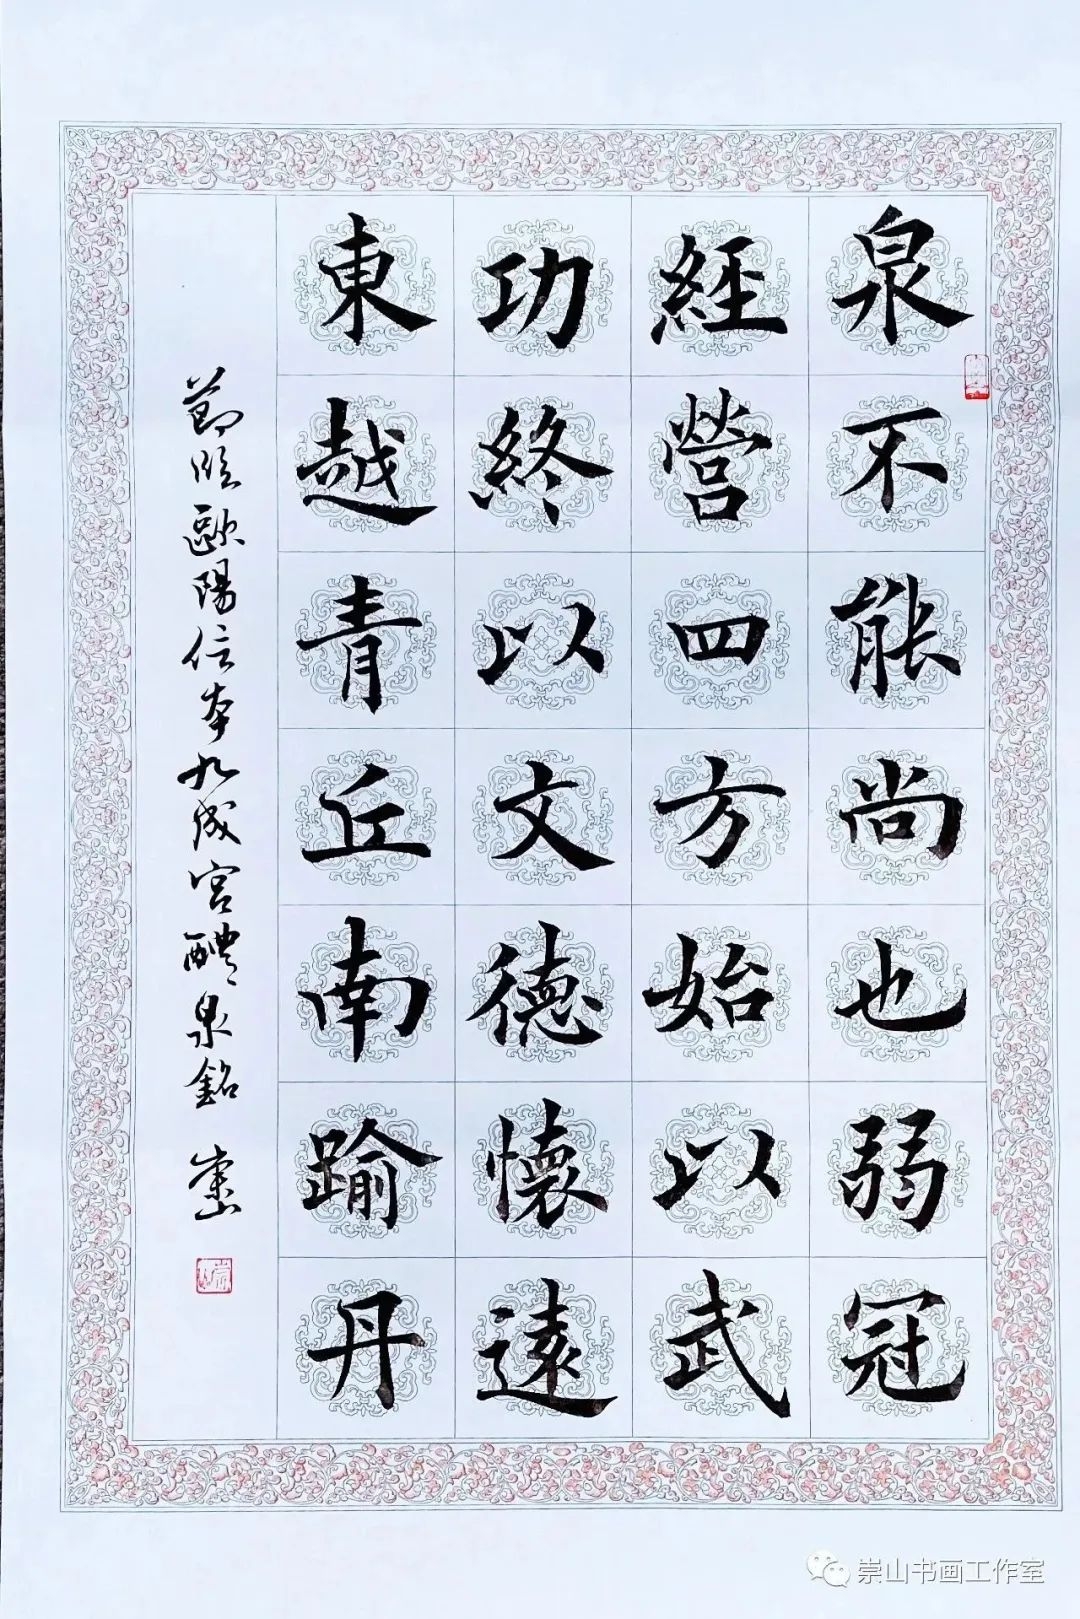 泉不能尚也弱冠
經營四方始以武
功終以文德懷遠
東越青丘南踰丹
節臨歐陽信本九成宮醴泉銘 崇山
崇山书画工作室